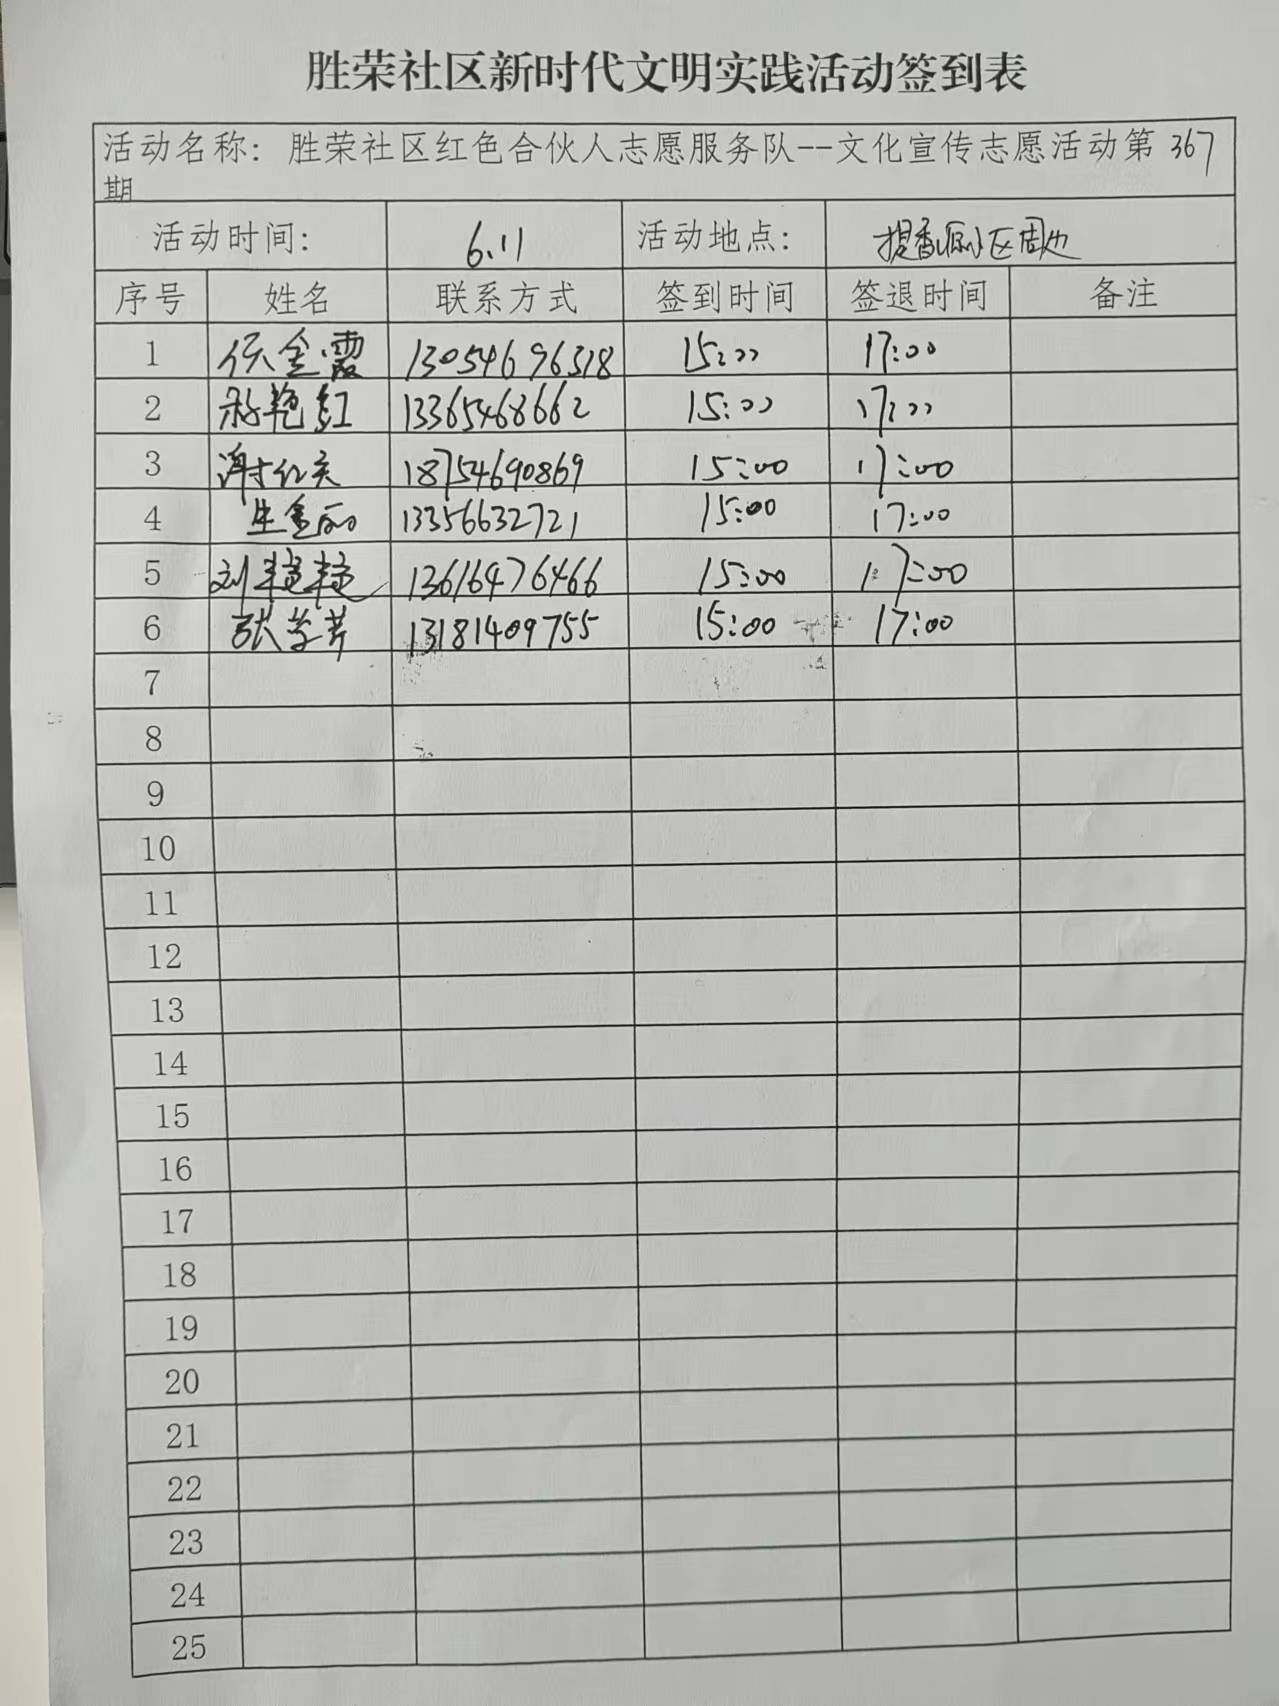 胜荣社区新时代文明实践活动签到表
活动名称：胜荣社区红色合伙人志愿服务队--文化宣传志愿活动第 367
期
活动时间： 6.11 活动地点： 提香源小区周边
序号 姓名 联系方式 签到时间 签退时间 备注
1 金霞 13054696318 15:00 17:00
2 艳红 13365468662 15:00 17:00
3 谢红 18754690869 15:00 17:00
4 生金丽 13356632721 15:00 17:00
5 刘艳艳 13616476466 15:00 17:00
6 张学芹 13181409755 15:00 17:00
7
8
9
10
11
12
13
14
15
16
17
18
19
20
21
22
23
24
25